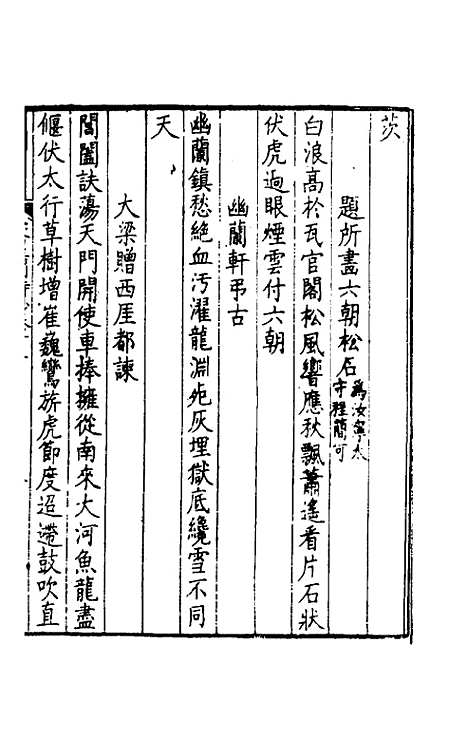 茨
題所畫六朝松石為汝寧太守程簡可
白浪高於瓦官閣松風響應秋飄蕭遙看片石狀
伏虎過眼煙雲付六朝
幽蘭軒弔古
幽蘭鎮愁絕血污濯龍淵死灰埋獄底纔雪不同
天
大梁贈西厓都諫
閶闔訣蕩天門開使車捧擁從南來大河魚龍盡
偃伏太行草樹增崔巍鸞旂虎節度迢遰鼓吹直